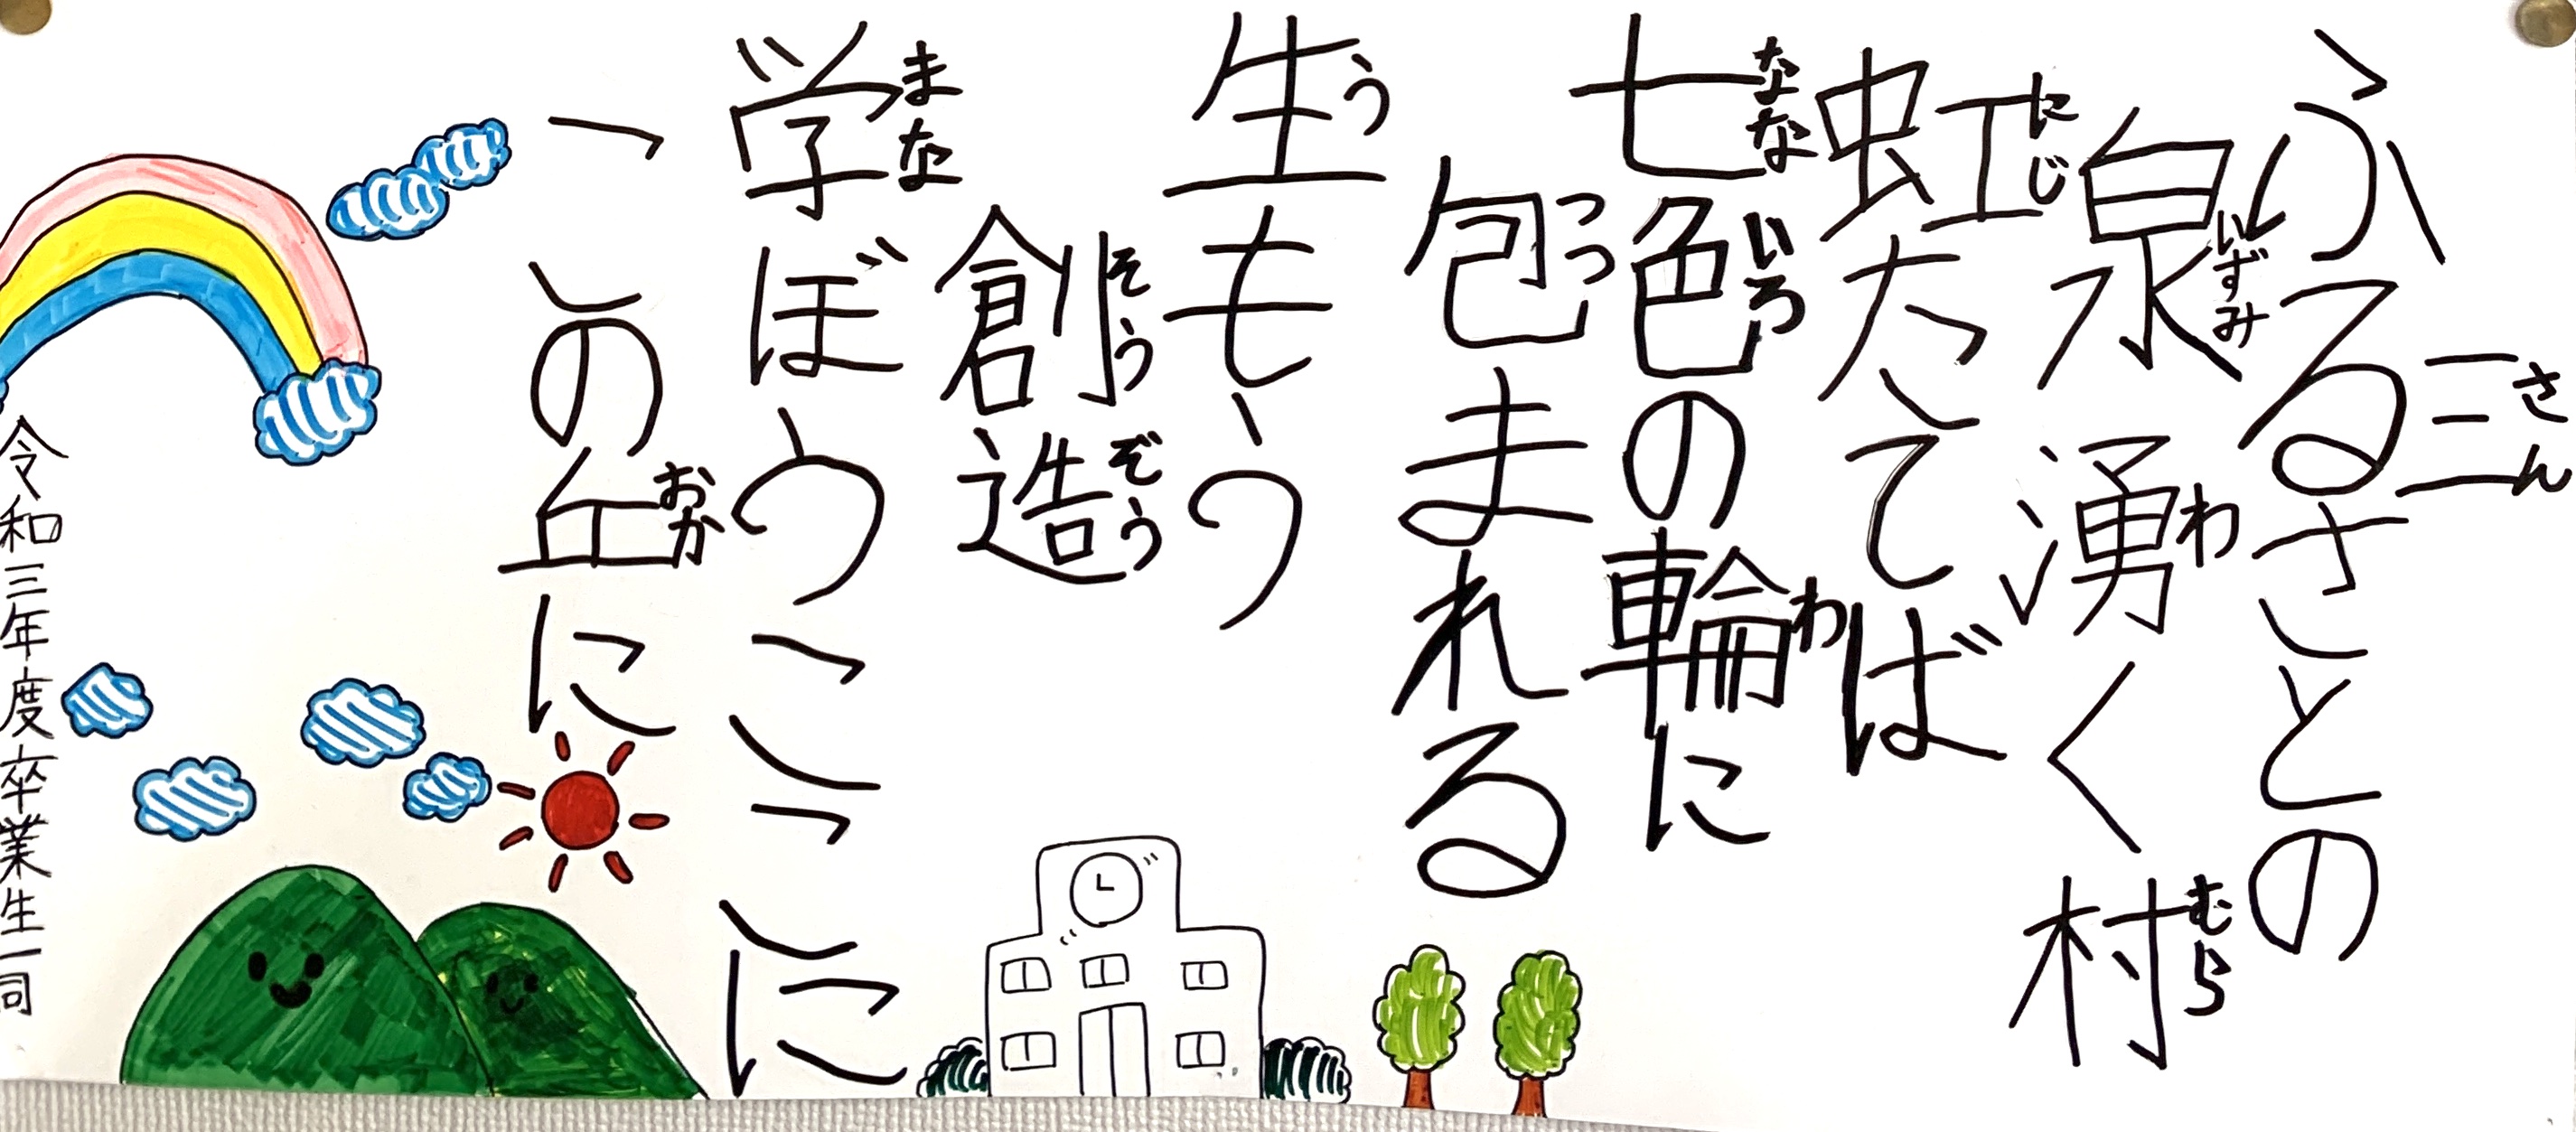 三
さん
ふるさとの
泉湧く村
いずみ わ むら
虹たてば
にじ
七色の輪に
なな いろ わ
包まれる
つつ
生もう
う
創造
そう ぞう
学ぼうここに
まな
この丘に
おか
令和三年度卒業生一同